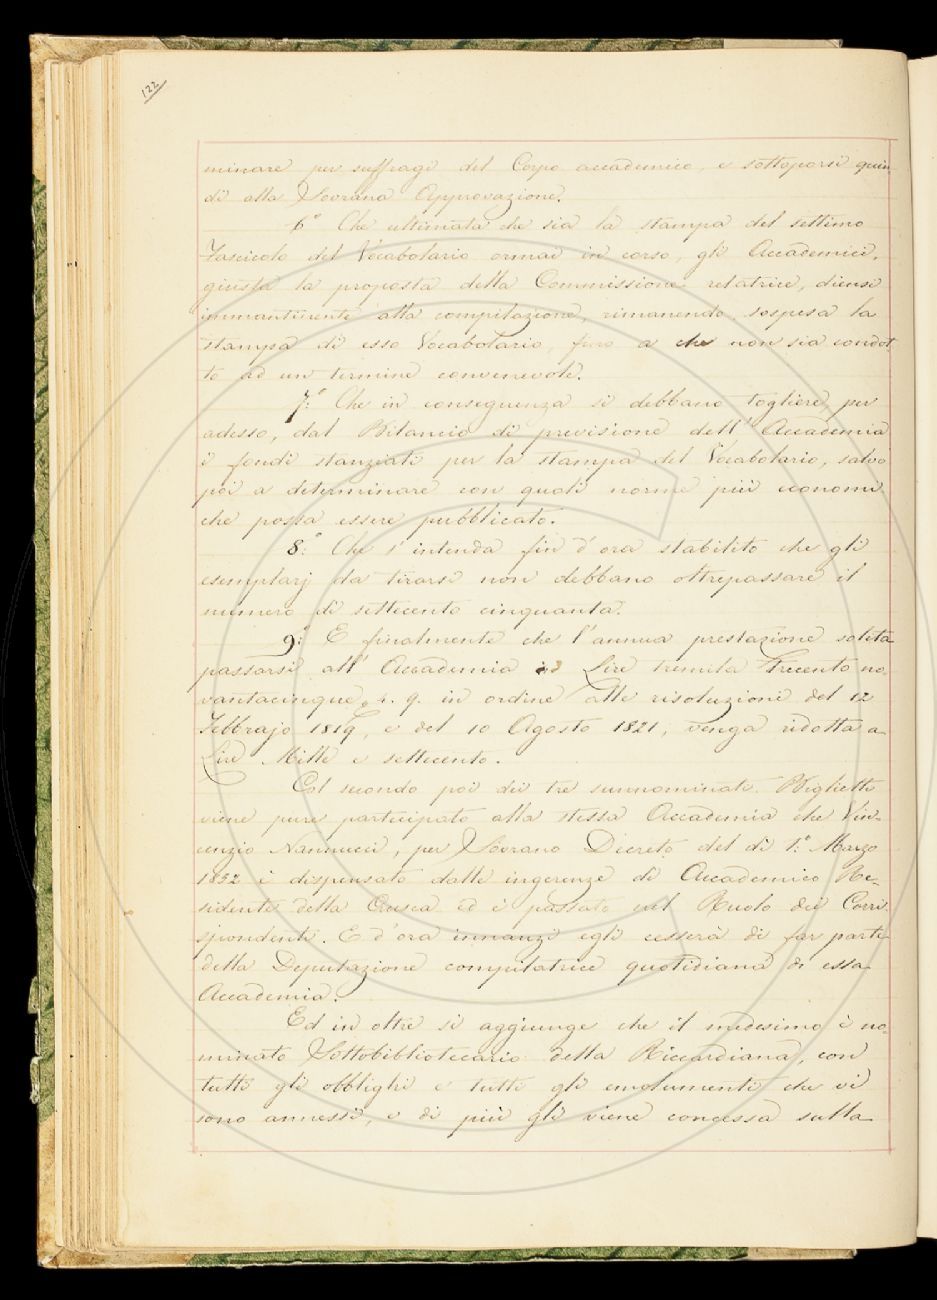 122
minare per suffragi del Corpo accademico, e sottoporsi quin-
di alla Sovrana Approvazione.
6.° Che ultimata che sia la stampa del settimo
Fascicolo del Vocabolario ormai in corso, gli Accademici,
giusta la proposta della Commissione relatrice, diensi
immantinente alla compilazione, rimanendo sospesa la
stampa di esso Vocabolario, fino a che non sia condot
to ad un termine convenevole.
7.° Che in conseguenza si debbano togliere, per
adesso, dal Bilancio di previsione dell'Accademia
i fondi stanziati per la stampa del Vocabolario, salvo
poi a determinare con quali norme più economi-
che possa essere pubblicato.
8.° Che s'intenda fin d'ora stabilito che gli
esemplarj da tirarsi non debbano oltrepassare il
numero di settecento cinquanta.
9.° E finalmente che l'annua prestazione solita
passarsi all'Accademia in Lire tremila trecento no-
vantacinque, 4. 9. in ordine alle risoluzioni del 12
Febbrajo 1819, e del 10 Agosto 1821, venga ridotta a
Lire Mille e settecento.
Col secondo poi dei tre sunnominati Biglietti
viene pure participato alla stessa Accademia che Vin-
cenzio Nannucci, per Sovrano Decreto del dì 1.° Marzo
1852 è dispensato dalle ingerenze di Accademico Re-
sidente della Crusca ed è passato nel Ruolo dei Corri-
spondenti. E d'ora innanzi egli cesserà di far parte
della Deputazione compilatrice quotidiana di essa
Accademia.
Ed in oltre si aggiunge che il medesimo è no-
minato Sottobibliotecario della Riccardiana, con
tutti gli obblighi e tutti gli emolumenti che vi
sono annessi, e di più gli viene concessa sulla